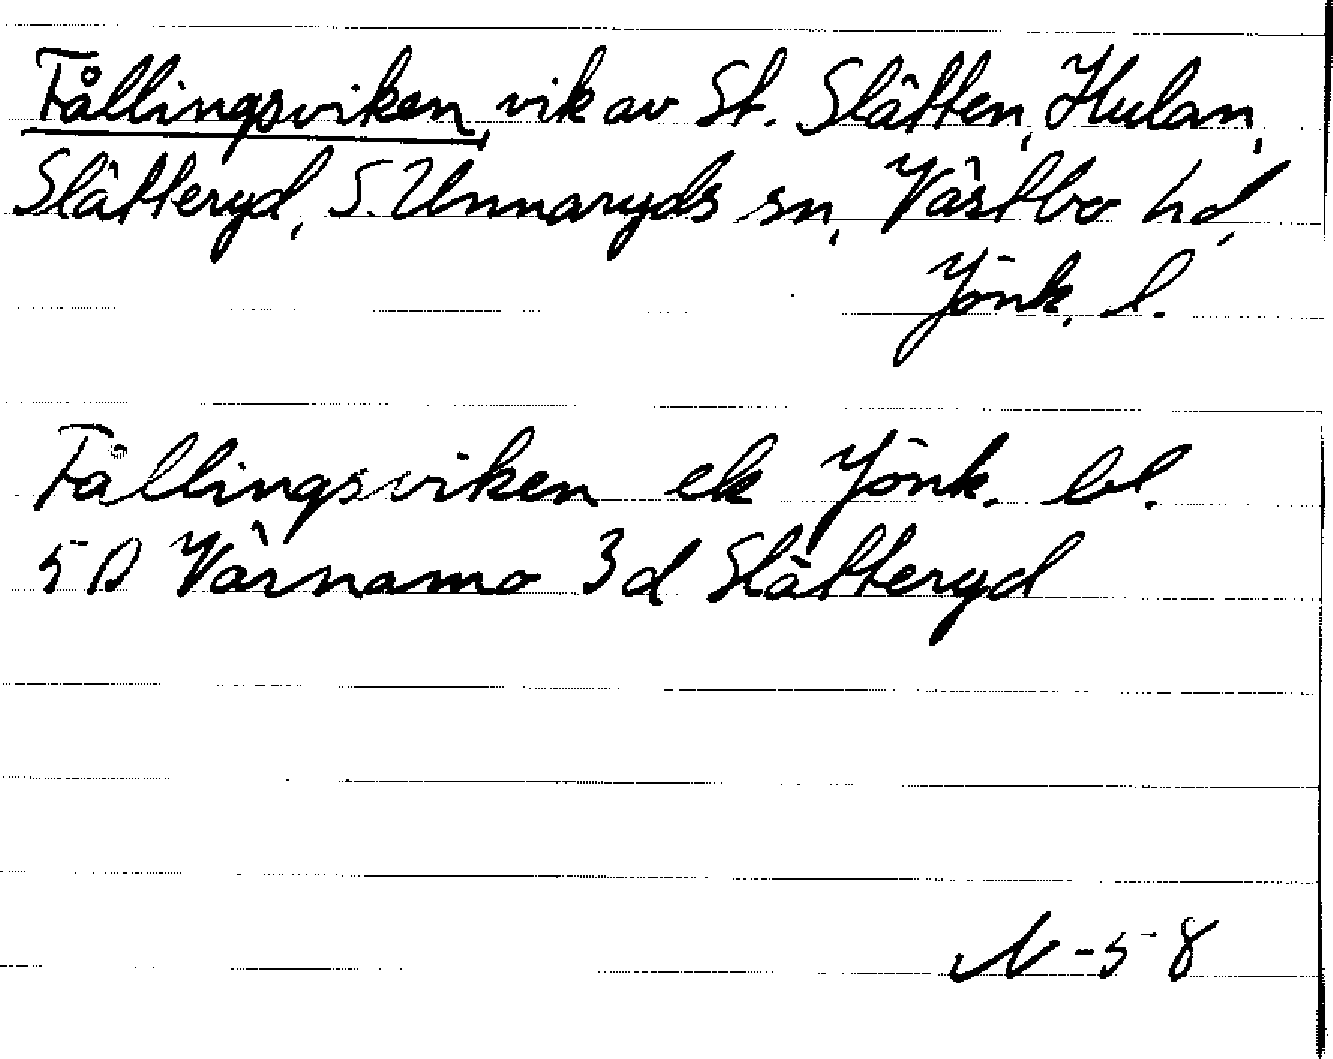 Fållingsviken, vik av St. Slätten, Hulan,
Slätteryd, S. Unnaryds sn, Västbo hd,
Jönk. l.
Fållingsviken ek Jönk. bl.
5 D Värnamo 3 d Slätteryd
N-58